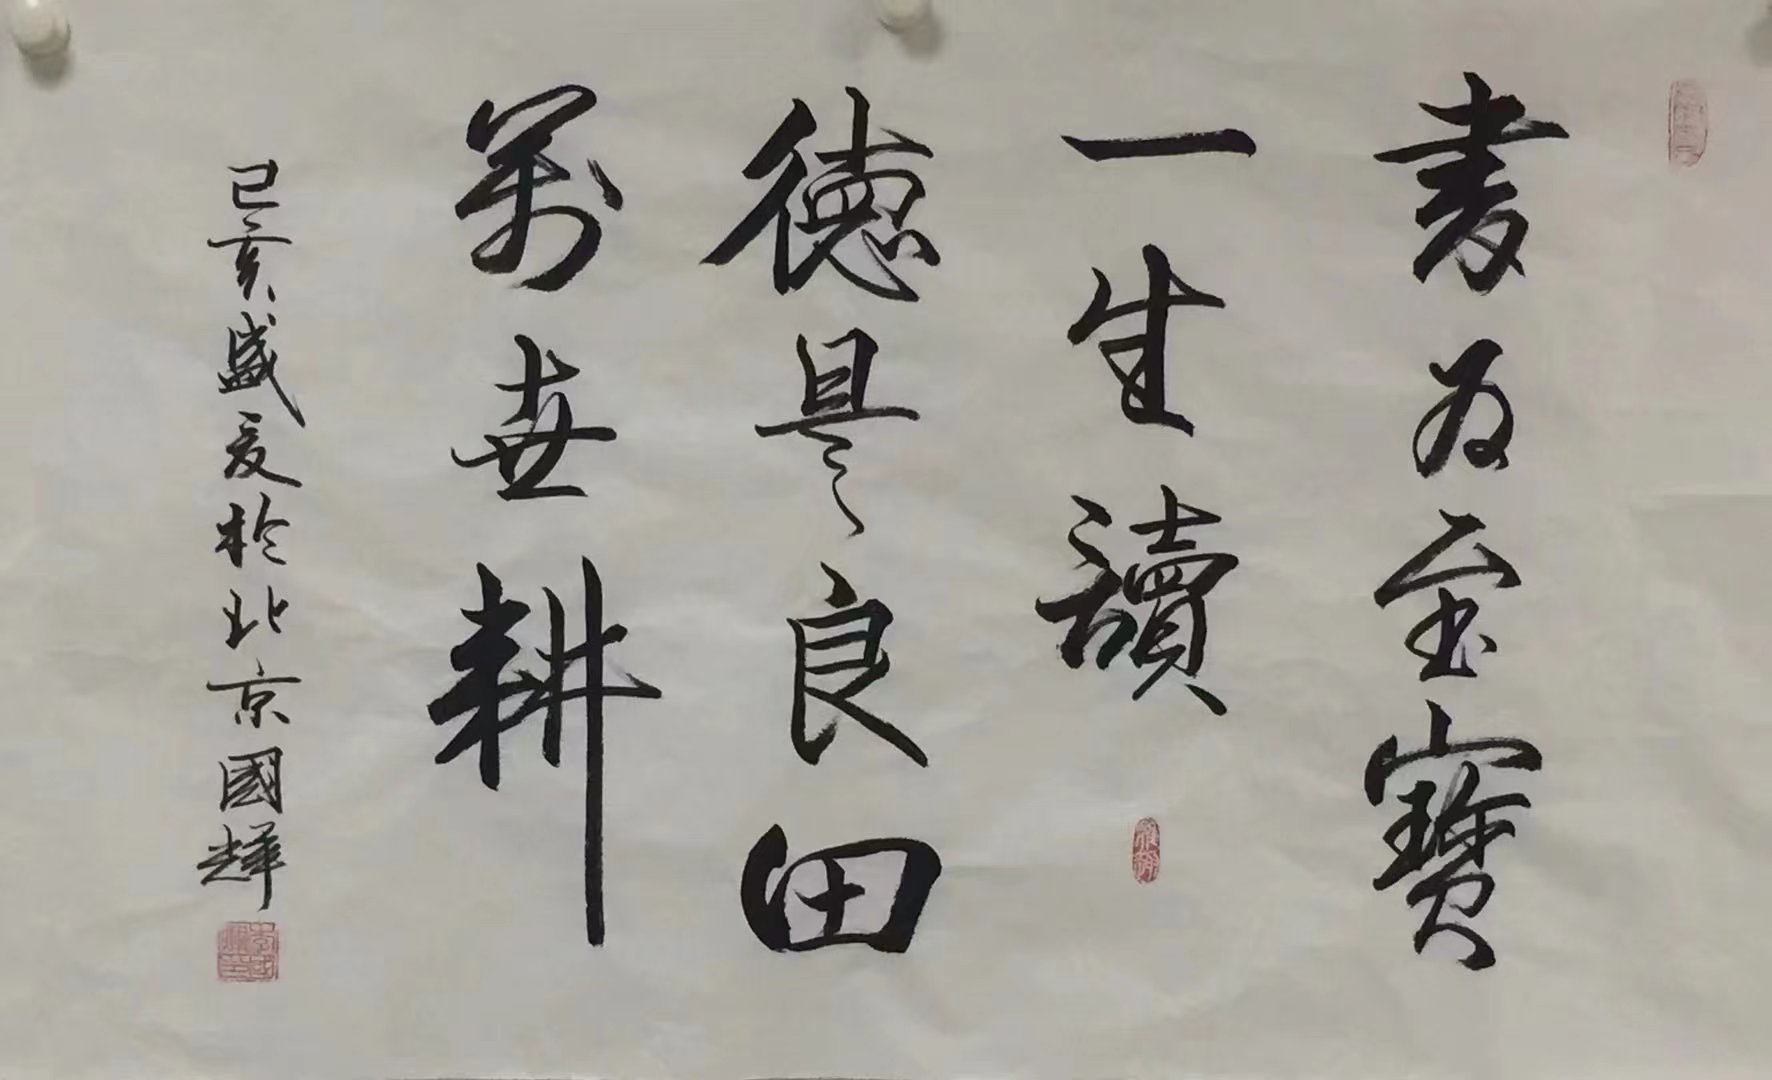 書為至寶
一生讀
德是良田
萬世耕
己亥盛夏於北京國輝